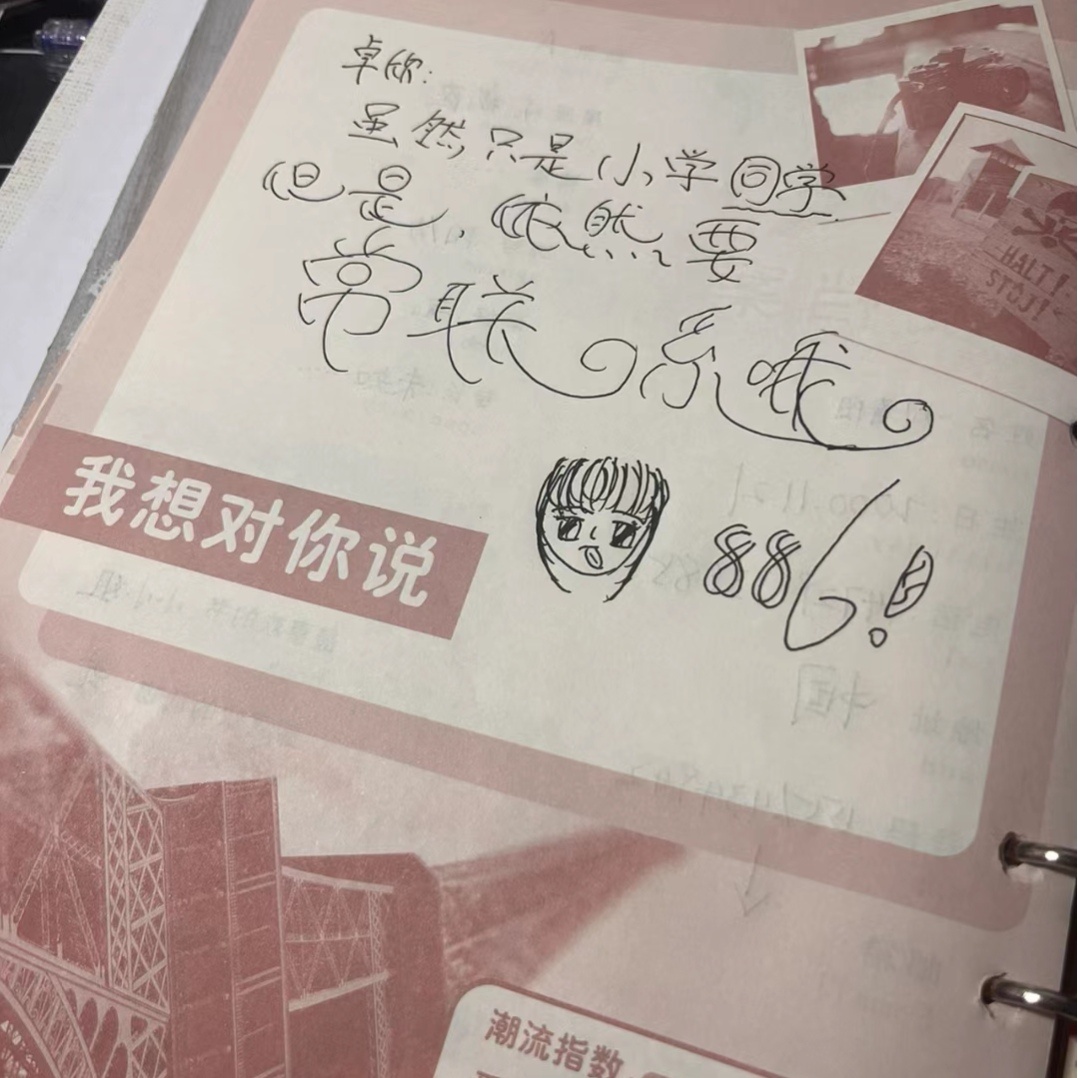 卓欣:
虽然只是小学同学
但是,依然要
常联系哦
886!
HALT!
STOJ!
我想对你说
潮流指数